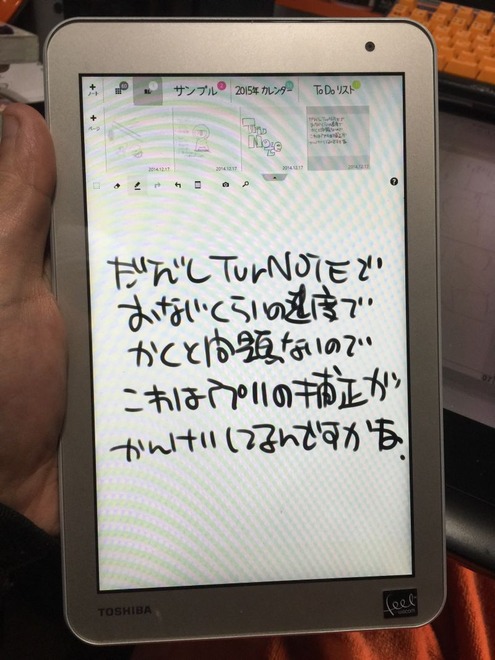 +ノート
サンプル
2015年 カレンダー
ToDo リスト
+ページ
2014.12.17
2014.12.17
2014.12.17
2014.12.17
だがしTurNOTEで
おなじくらいの速度で
かくと問題ないので
これはアプリの補正が
かんけいしてるんですかね.
TOSHIBA
feel